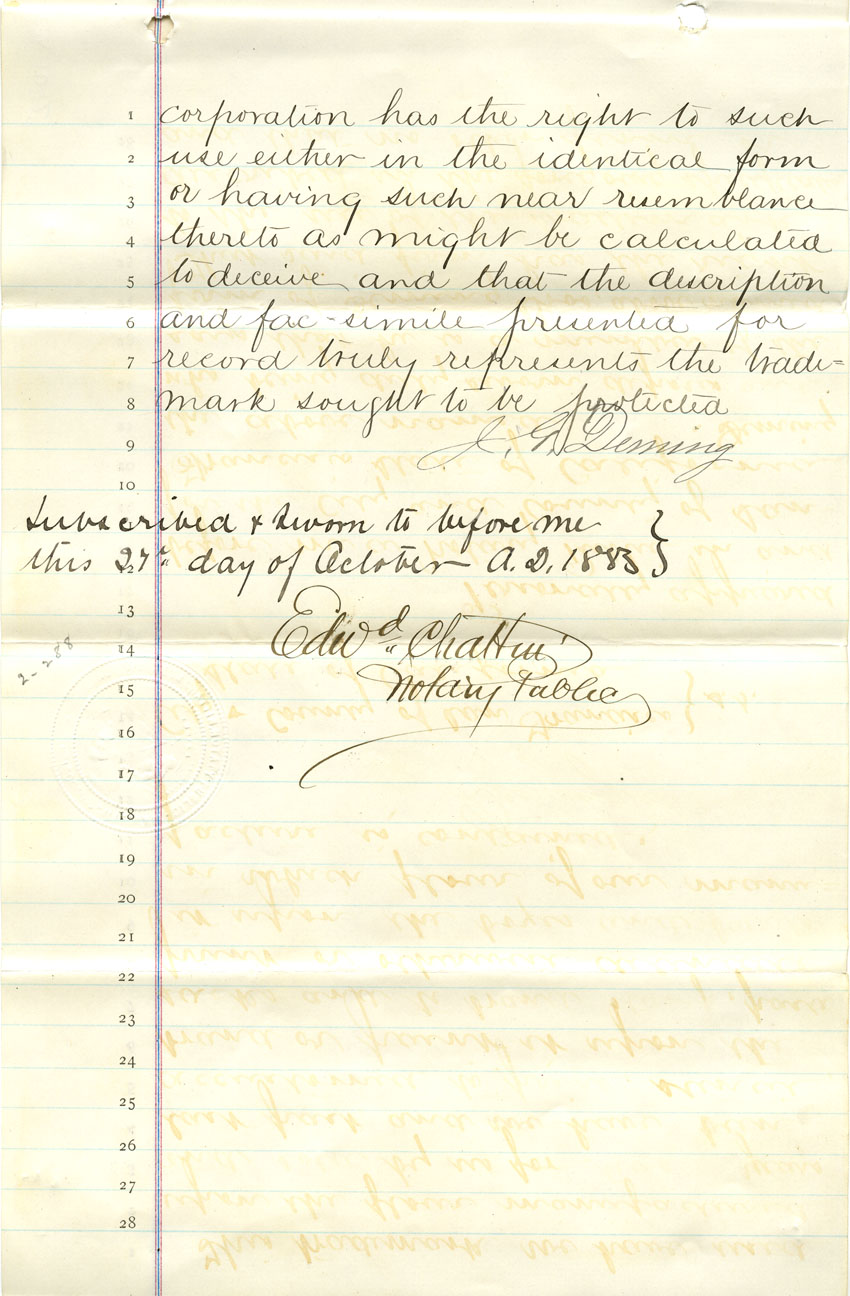 1 corporation has the right to such
2 use either in the identical form
3 or having such near resemblance
4 thereto as might be calculated
5 to deceive and that the description
6 and fac-simile presented for
7 record truly represents the trade=
8 mark sought to be protected
9 J. G. Deming
10
Subscribed & Sworn to before me
this 27th day of October A.D. 1883
13
Edwd Chattin
14
2-288
Notary Public
15
16
17
18
19
20
21
22
23
24
25
26
27
28